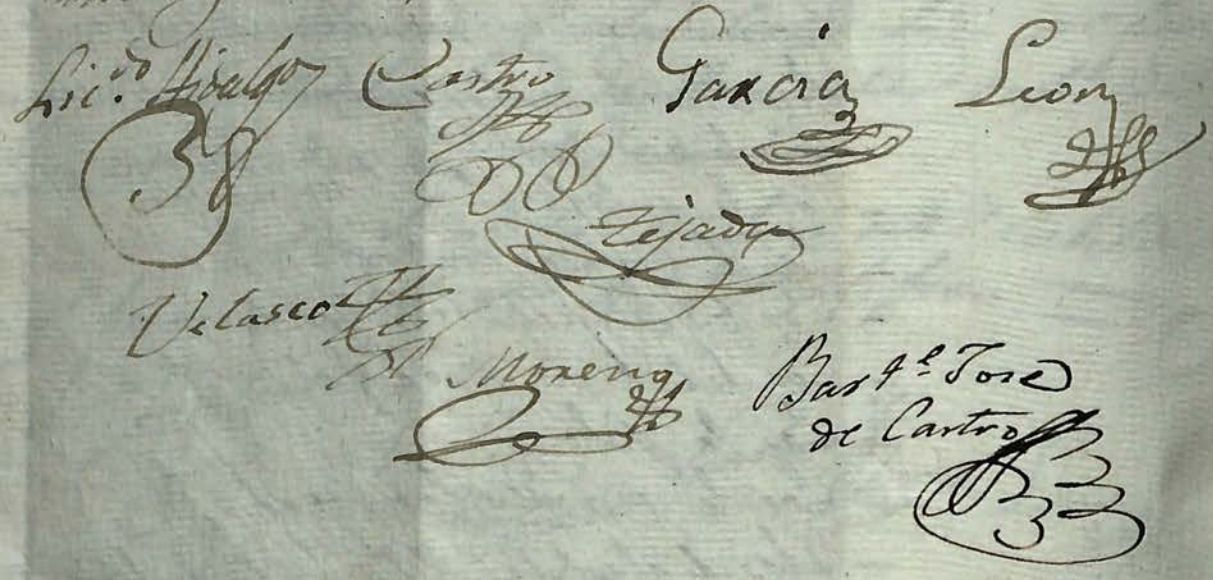 Lic.do Hidalgo Castro Garcia Leon
Tejada
Velasco
Moreno
Bart.e Jose
de Castro